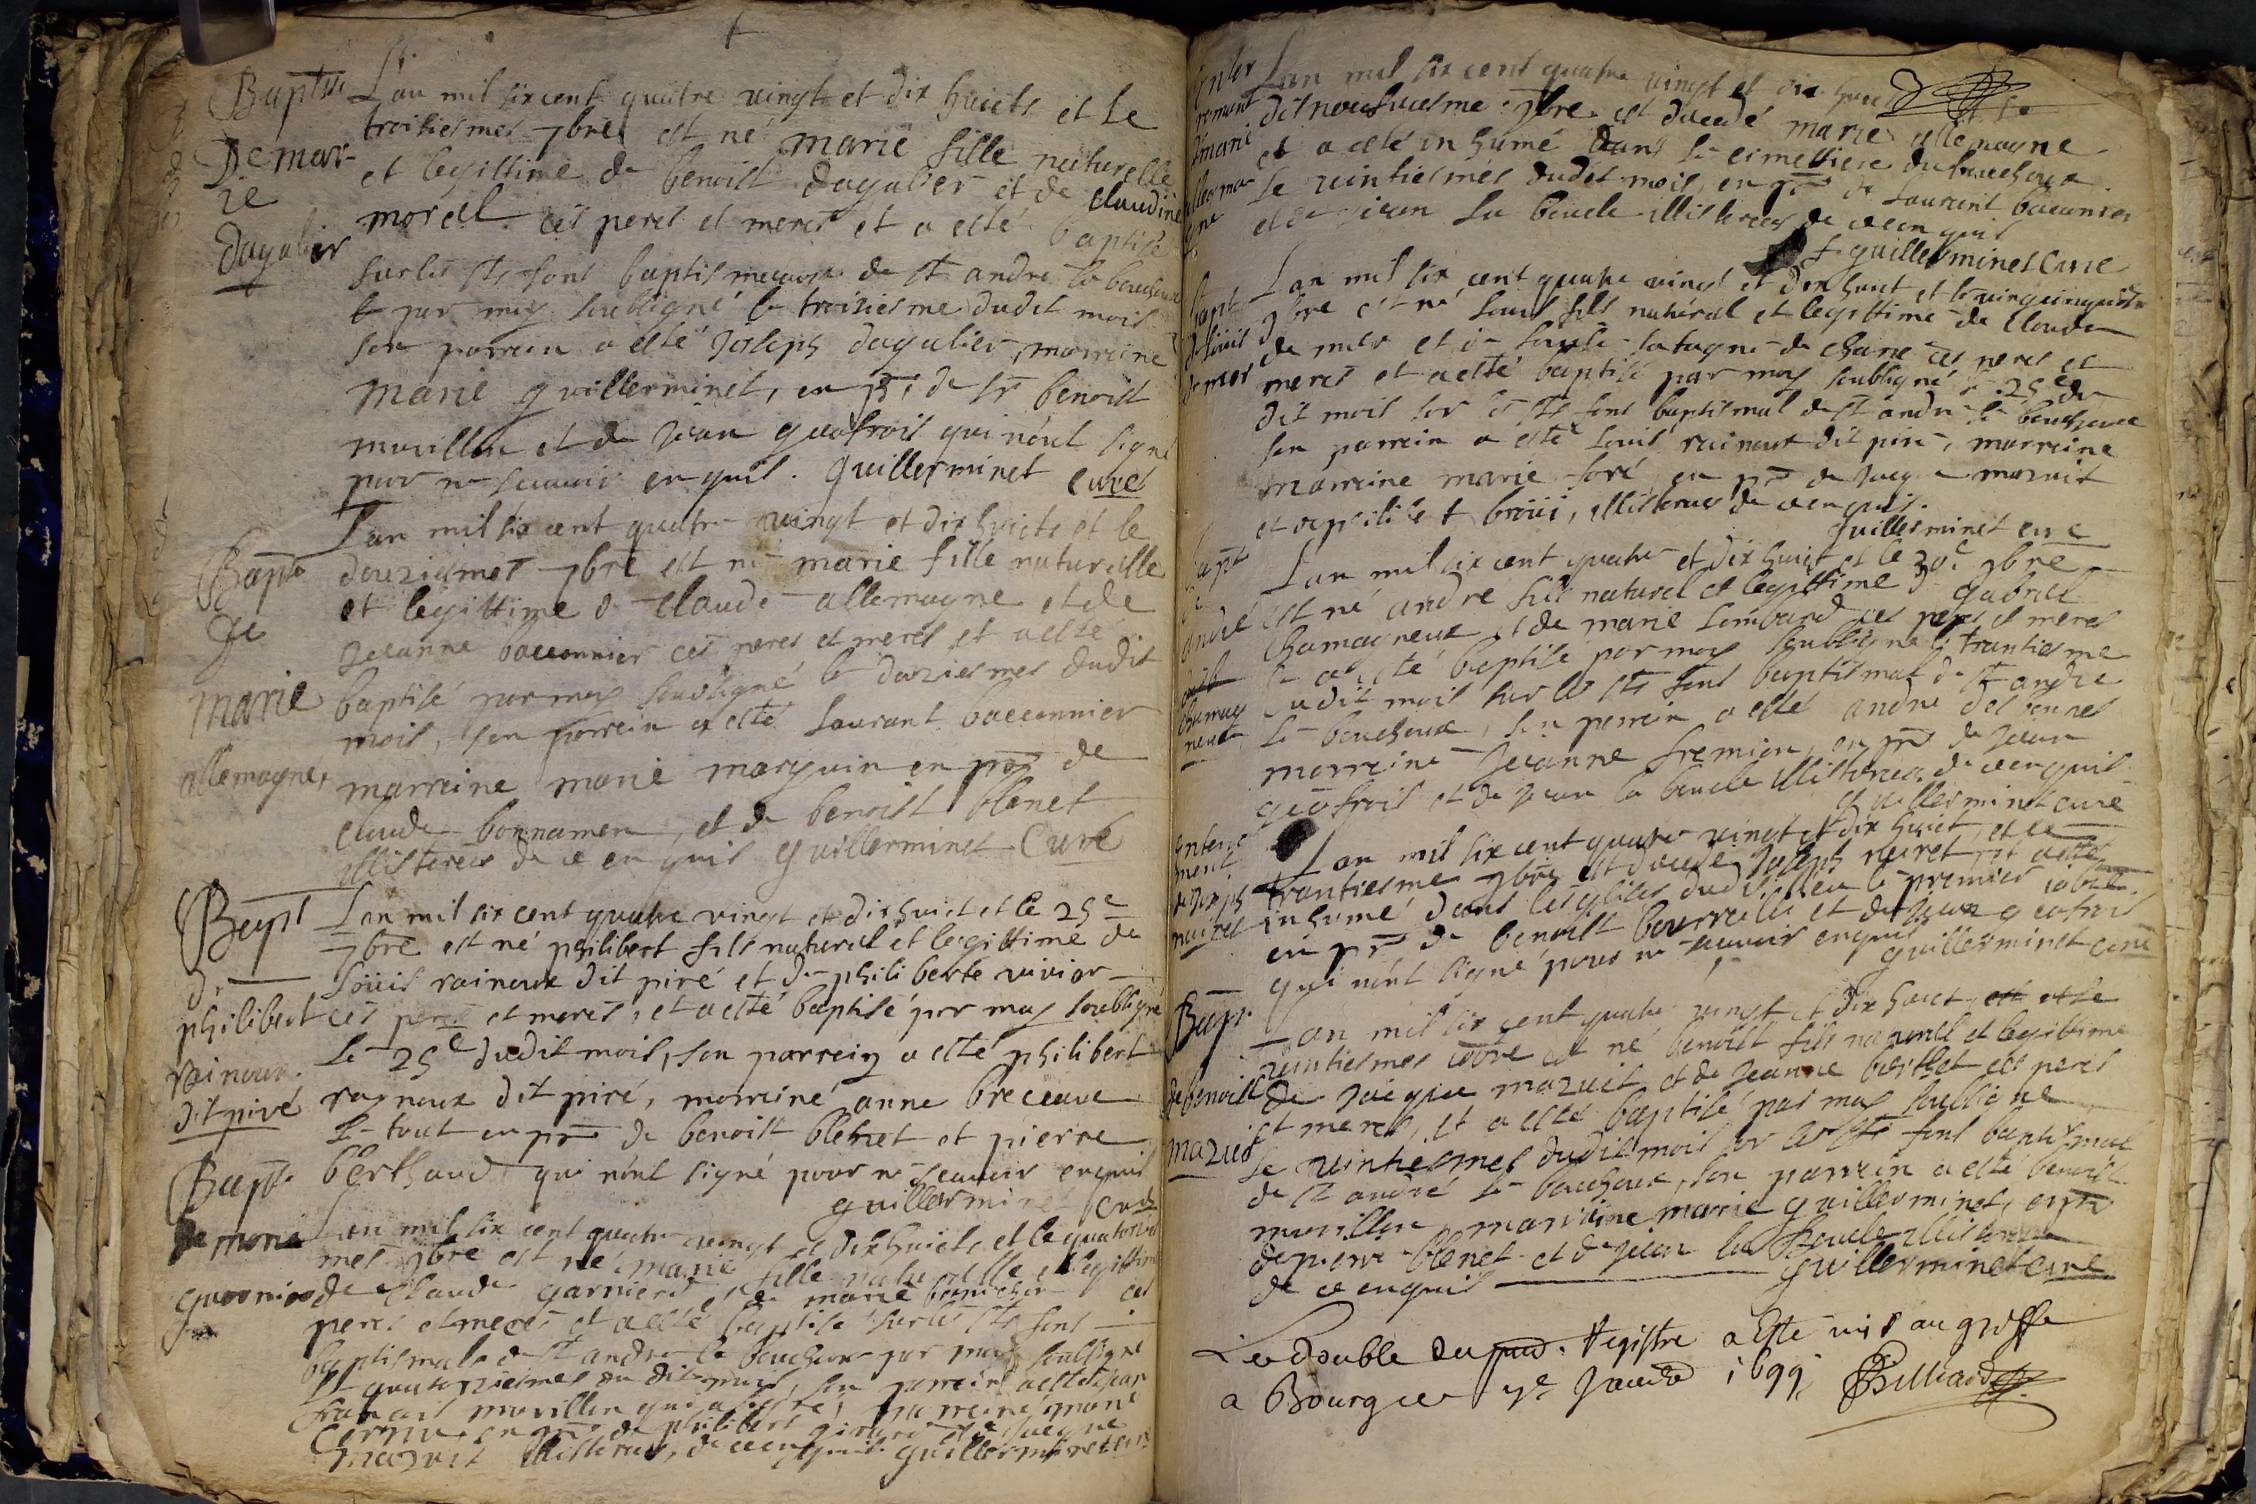 Baptes
De mar-
ie
dagalier
L'an mil six cent quattre vingt et dix huicts et le
troisiesmes 7bre est né marie fille naturelle
et legittime de benoist dagalier et de claudine
morel ces peres et meres et a esté baptisé
sur les sts fons baptismeaux de st andre le bouchoux
par moy soubsigné le troisiesme dudit mois
son parrein a esté Joseph dagalier, marreine
marie guillerminet, en pr, de sr benoist
muvillon et de Jean geofrois qui n'ont signé
pour ne scavoir enquis. guillerminet curé
Bapte
de
marie
allemagne
L'an mil six cent quatre vingt et dix huicts et le
douziesmes 7bre est né marie fille naturelle
et legittime de claude allemagne et de
Jeanne baconnier ces peres et meres et a esté
baptisé par moy soubsigné le douziesmes dudit
mois, son parrein a esté laurant baconnier
marreine marie marguin en pr de
claude bonnamen, et de benoist blenet
illisterees de ce enquis guillerminet Curé
Bapt
de
philibert
rainoux
dit piré
L'an mil six cent quatre vingt et dix huict et le 25e
7bre est né philibert fils natural et legittime de
loüis rainoux dit piré et de philiberte vivior
ces peres et meres, et a esté baptisé par moy soubsigné
le 25e dudit mois, son parrein a esté philibert
raynoux dit piré, marreine anne breceaux
le tout en pr de benoist blenet et pierre
berthaud qui n'ont signé pour ne scavoir enquis
guillerminet curé
Bapte
de marie
garnier
L'an mil six cent quatre vingt et dix huicts et le quatorzies
mes 7bre est né marie fille naturelle et legittime
de claude garnier et de marie ces
peres et meres et a esté baptisé sur les sts fons
baptismals de st andre le bouchoux par moy soubsigné
le quatorziesmes du dit mois, son parrein a esté
francois muvillon qui a signé, marreine marie
en pr de philibert et de Jacque
mazuit illisterees, de ce enquis guillerminet curé
enter
rement
de marie
allema
gne
L'an mil six cent quatre vingt et dix huict et le
dis neufviesme 7bre est decedé marie allemagne
et a esté inhumé dans le cimettiere du bouchoux
le vintiesmes dudit mois, en pr de laurent baconnier
et de jean la boucle illisterees de ce enquis
guillerminet Cure
bapt
de louis
de mer
L'an mil six cent quatre vingt et dix huict et le vingtcinquiesme
7bre est né louis fils natural et legittime de claude
de mer et de ces peres et
meres et a esté baptisé par moy soubsigné le 25e du
dit mois sur les sts fons baptismal de st andre le bouchoux
son parrein a esté louis rainoux dit piré, marreine
marreine marie foré, en pr de Jacque mazuit
et de philibert broüi, illisterees de ce enquis.
guillerminet curé
bapt
de
andré
chamag
neux
L'an mil six cent quatre et dix huict et le 30e 7bre
est né andre fils naturel et legittime de gabriel
chamagneux et de marie lombard ces peres et meres
et a esté baptisé par moy soubsigné le trantiesme
dudit mois sur les sts fons baptismal de st andre
le bouchoux, son perrein a estes andre des bonnes
marreine Jeanne fremion, en pr de Jean
geofrois et de Jean la boucle illisterees de ce enquis
guillerminet curé
enterre
ment
de Joseph
noiret
L'an mil six cent quatre vingt et dix huict, et le
trantiesme 7bre est decedé Joseph noiret, et a esté
inhumé dans l'esglise dudit lieu le premier 10bre
en pr de benoist bourcelis et de Jean geofrois
qui n'ont signé pour ne scavoir enquis
guillerminet curé
Bapt.
de benoist
mazuit
L'an mil six cent quatre vingt et dix huict et le
vintiesmes 10bre est né benoist fils naturel et legittime
de Jacque mazuit et de Jeanne berthet ces peres
et meres, et a esté baptisé par moy soubsigné
le vintiesmes dudit mois sur les sts fons baptismal
de st andré le bouchoux, son parrein a esté benoist
muvillon, marreine marie guillerminet, en pr
de pierre blenet et de jean la boucle illisterees
de ce enquis guillerminet curé
Le double du pnt. Registre a esté mis au greffe
a Bourg ce 7e Janvier 1699 Billiard